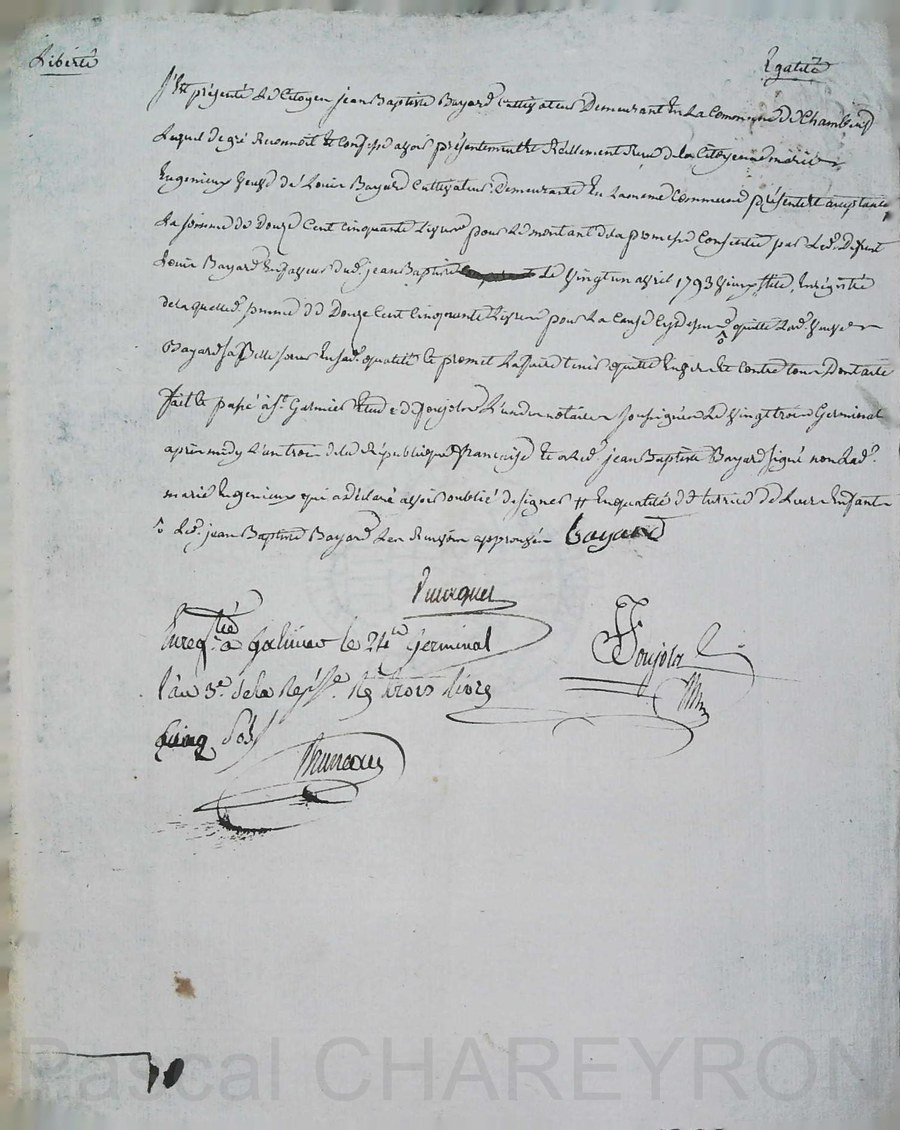 Liberté
Egalité
S'est présenté Le Citoyen jean Baptiste Bayard Cultivateur Demeurant En La Commune de Chambeuf
Lequel de gré Reconnoit et Confesse avoir présentement et Réellement Reçu de la Citoyenne marie
Ingenieux Veuve de Louis Bayard Cultivateur Demeurante En La meme Commune présente et acceptante
La somme de Douze Cent cinquante Livres pour Le montant de la promesse Consentie par Led. Defunt
Louis Bayard En faveur dud. jean Baptiste Le Vingt un avril 1793 Vieux stile, Enregistrée
de laquelle somme de Douze Cent Cinquante Livres pour La Cause Cy dessus quitte Lad. Veuve
Bayard sa Belle soeur En sad. qualité Et promet La faire tenir quitte Envers Et Contre tous Dont acte
fait Et passé à St. Garmier Etude de Poujolar L'un des notaires soussignés Le Vingt trois Germinal
après midy L'an trois de la République française Et a Led. jean Baptiste Bayard signé non Lad.
marie Ingenieux qui a déclaré avoir oublié de signer # En qualité de tutrice de Leurs Enfants
Led. jean Baptiste Bayard Les Renvois approuvés Bayard
Enregtré a Galmier le 24e Germinal
l'an 3e de la Repfse R trois livres
Cinq Sols
Pascal CHAREYRON